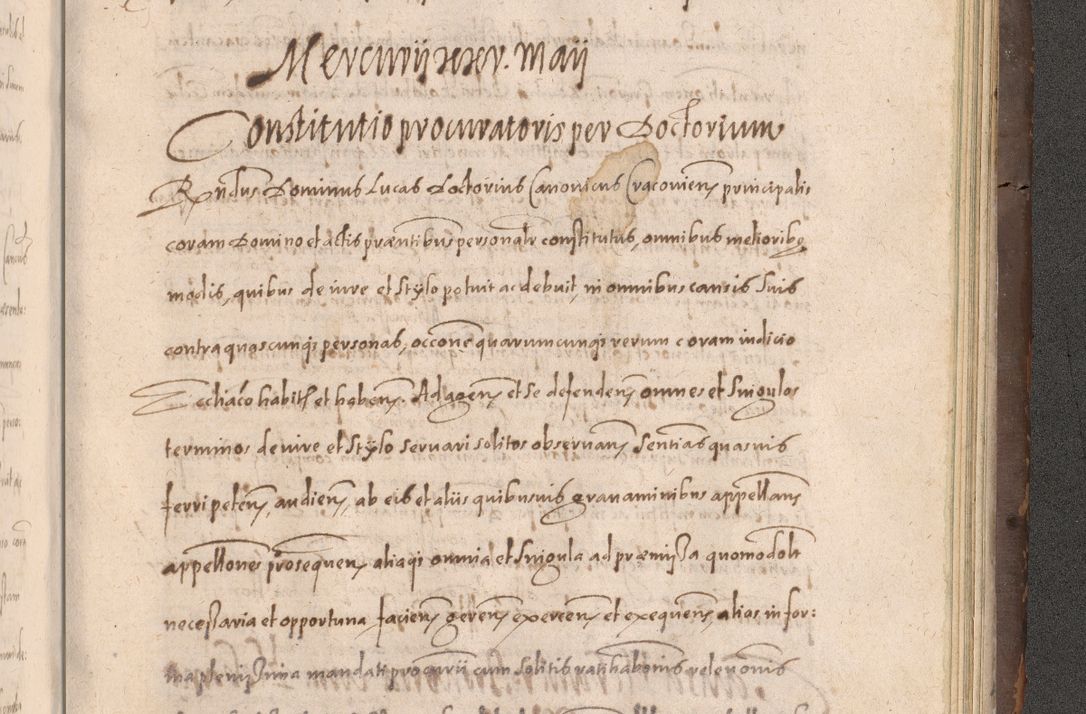 Mercurii xxv. Maii
Constitutio procuratoris per Doctorium
Rndus Dominus Lucas Doctorius Canonicus Cracovien principalis
coram Domino et actis praesentibus personalr constitutus, omnibus melioribus
modis, quibus de iure et stylo potuit ac debuit, in omnibus causis suis
contra quascunqs personas, occone quarumcunqs rerum coram iudicio
Eccliaco habitis et haben. Ad agen et se defenden omnes et singulos
terminos de iure et stylo servari solitos observan Sentias quasvis
ferri peten, audien, ab eis et aliis quibusvis gravaminibus appellan
appellones prosequen aliaqs omnia et singula ad praemissa quomodolt
necessaria et opportuna facien geren exercen et exequen, alias in for:
ma plenissima mandati procurii cum solitis ratihabonis relevonis